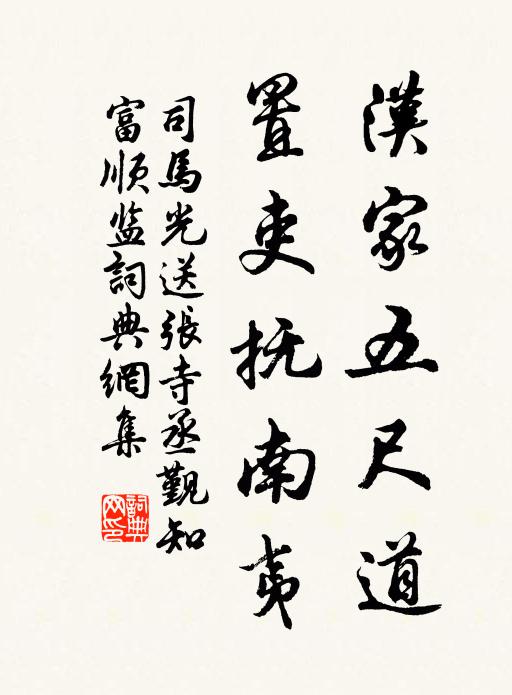 漢家五尺道
置吏抚南夷
司馬光送張寺丞觐知
富順监詞典網集
詞典網印